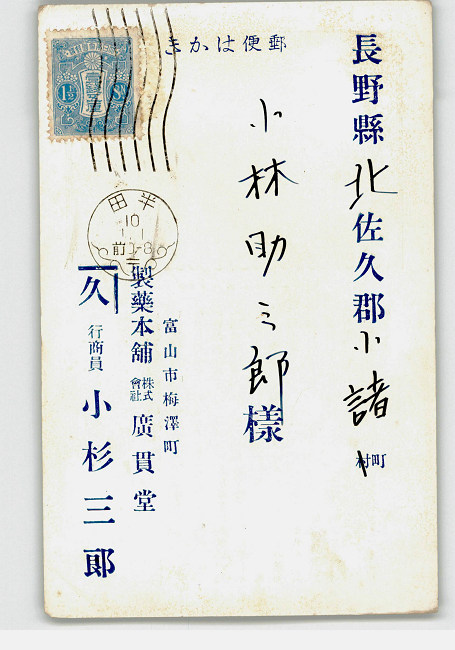 郵便はかき
長野縣北佐久郡小諸町村
小林助三郎様
富山市梅澤町
製藥本舖 株式會社 廣貫堂
久 行商員 小杉三郎
半田
10
前0-8